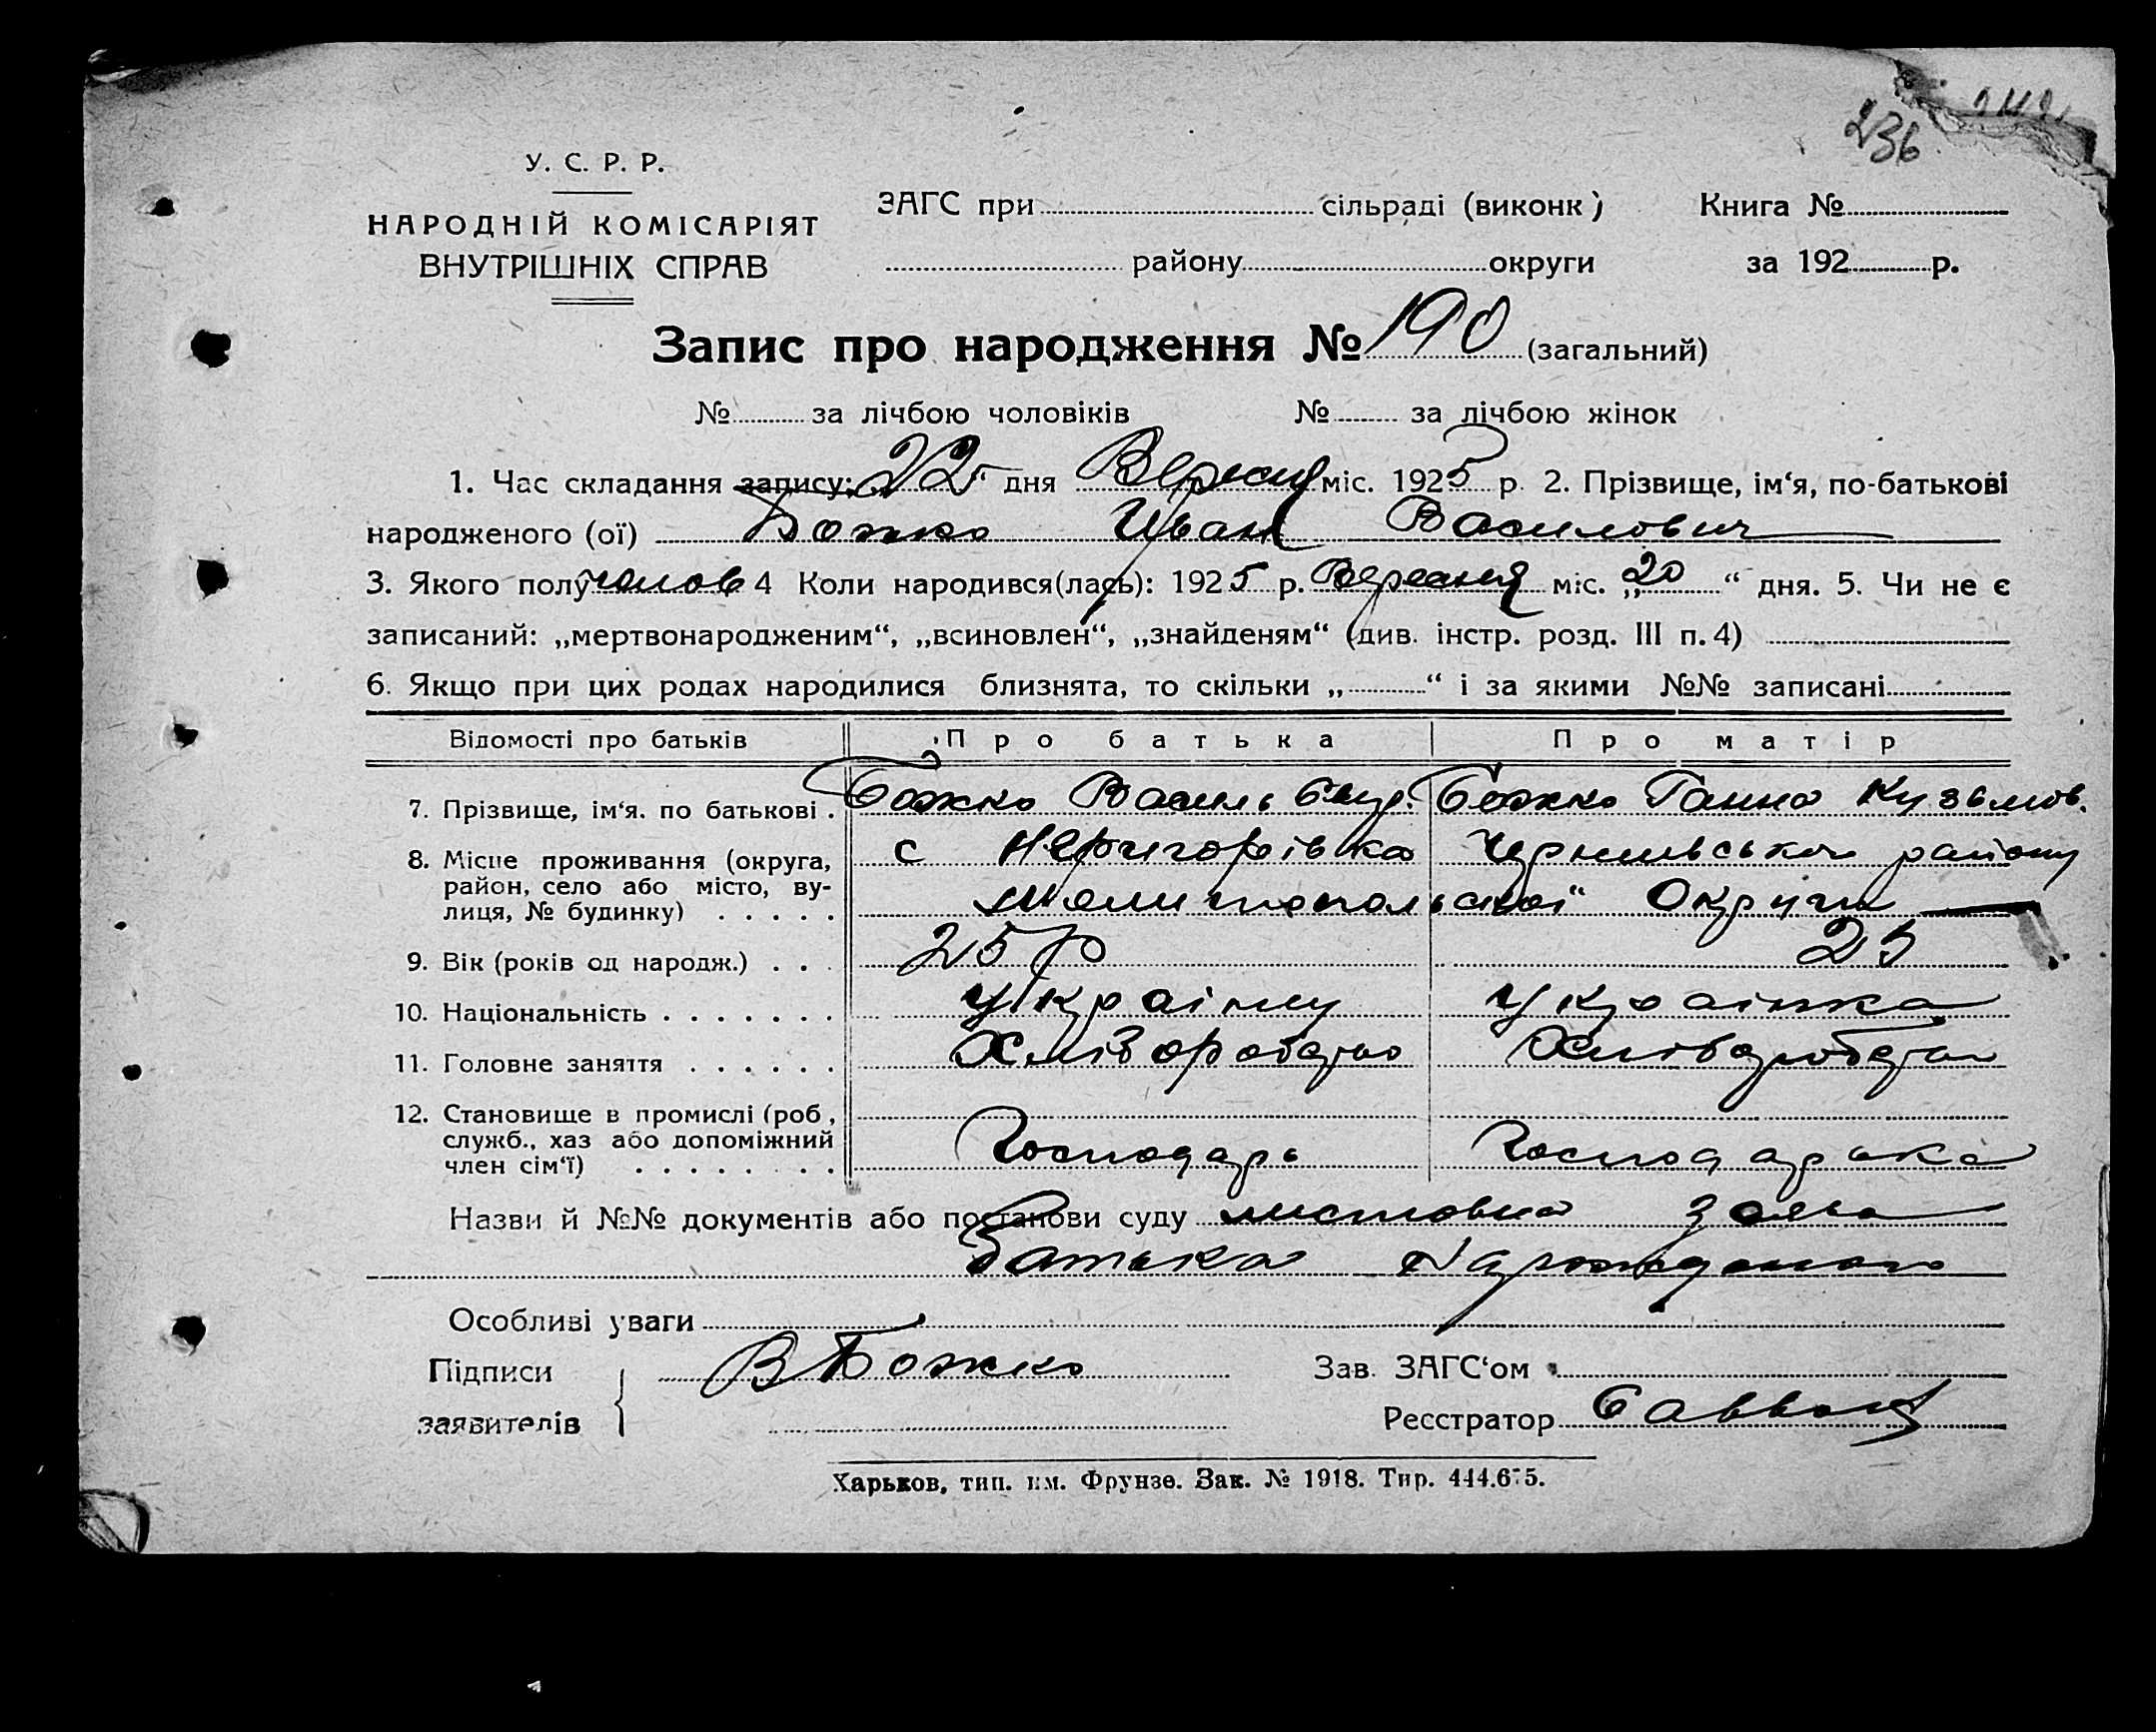 236
У. С. Р. Р.
НАРОДНІЙ КОМІСАРІЯТ
ВНУТРІШНІХ СПРАВ
ЗАГС при сільраді (виконк) Книга №
району округи за 192 р.
Запис про народження № 190 (загальний)
№ за лічбою чоловіків № за лічбою жінок
1. Час складання запису: 22 " дня Вересня міс. 1925 р. 2. Прізвище, ім‘я, по-батькові
народженого (ої) Божко Иван Василович
3. Якого полу чолов 4 Коли народився(лась): 1925 р. Вересня міс. „20“ дня. 5. Чи не є
записаний: „мертвонародженим“, „всиновлен“, „знайденям“ (див. інстр. розд. III п. 4)
6. Якщо при цих родах народилися близнята, то скільки „ “ і за якими №№ записані
Відомості про батьків Про батька Про матір
7. Прізвище, ім‘я. по батькові . Божко Василь Божко Ганна Кузьмов.
8. Місце проживання (округа, с Нечигорівка району
район, село або місто, ву-
лиця, № будинку) . . . . . Мелитопольскої Округи
9. Вік (років од народж.) . . . 25 р 25
10. Національність . . . . . . . Українка
11. Головне заняття . . . . . . Хліборобство
12. Становище в промислі (роб.,
служб., хаз або допоміжний
член сім‘ї) . . . . . . . Господарь Господарька
Назви й №№ документів або постанови суду листовна заява
батька
Особливі уваги
Підписи В Божко Зав. ЗАГС‘ом
заявителів Реєстратор
Харьков, тип. им. Фрунзе. Зак. № 1918. Тир. 444.675.